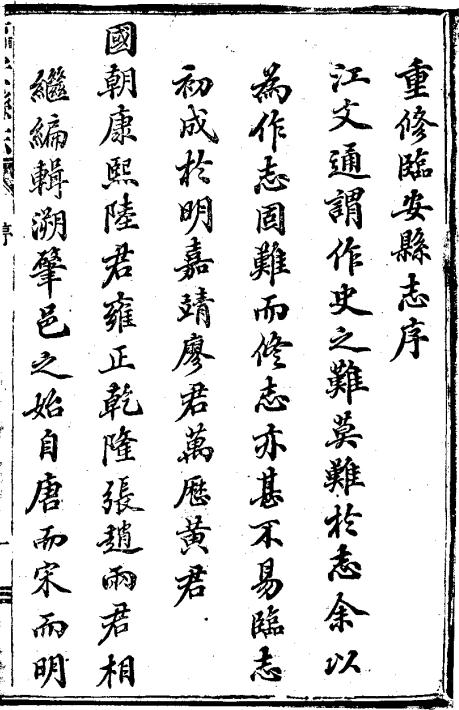 重修臨安縣志序
江文通謂作史之難莫難於志余以
為作志固難而修志亦甚不易臨志
初成於明嘉靖廖君萬歷黃君
國朝康熙陸君雍正乾隆張趙兩君相
繼編輯溯肇邑之始自唐而宋而明
序